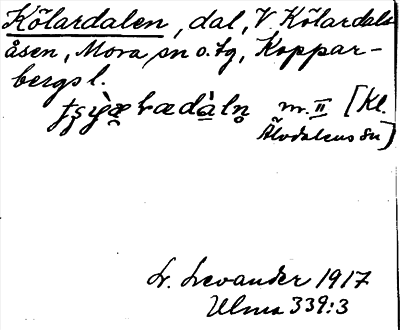 Kölardalen, dal, V. Kölardals
åsen, Mora sn o. tg, Koppar-
bergs l.
nr. II [Kl.
Älvdalens sn]
L. Levander 1917
Ulma 339:3